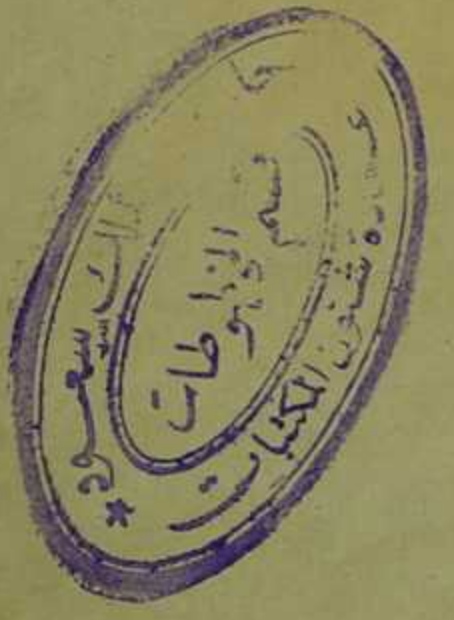 الملك سعود
عمادة شئون المكتبات
قسم المخطوطات
*